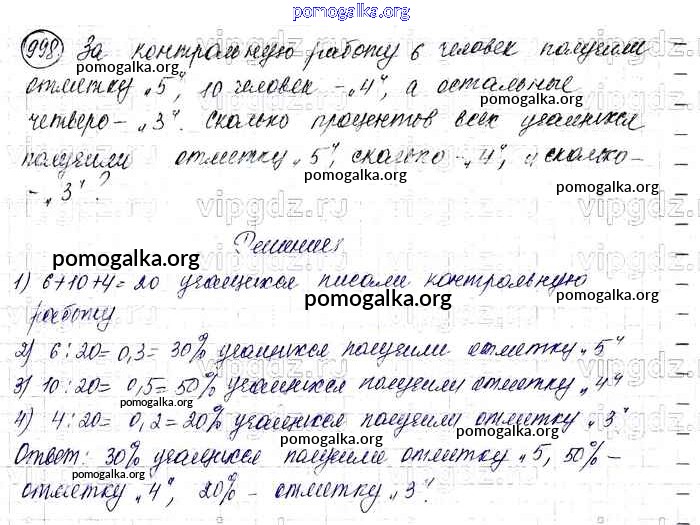 pomogalka.org
998. За контрольную работу 6 человек получили
pomogalka.org
отметку „5“, 10 человек - „4“, а остальные
pomogalka.org
четверо - „3“. Сколько процентов всех учащихся
pomogalka.org
получили отметку „5“, сколько - „4“, и сколько -
pomogalka.org
- „3“?
vipgdz.ru vipgdz.ru
Решение:
pomogalka.org
1) 6+10+4=20 учащихся писали контрольную
pomogalka.org
работу
2) 6:20=0,3=30% учащихся получили отметку „5“
pomogalka.org
3) 10:20=0,5=50% учащихся получили отметку „4“
pomogalka.org
4) 4:20=0,2=20% учащихся получили отметку „3“
pomogalka.org
Ответ: 30% учащихся получили отметку „5, 50% -
pomogalka.org
отметку „4“, 20% - отметку „3“.
pomogalka.org